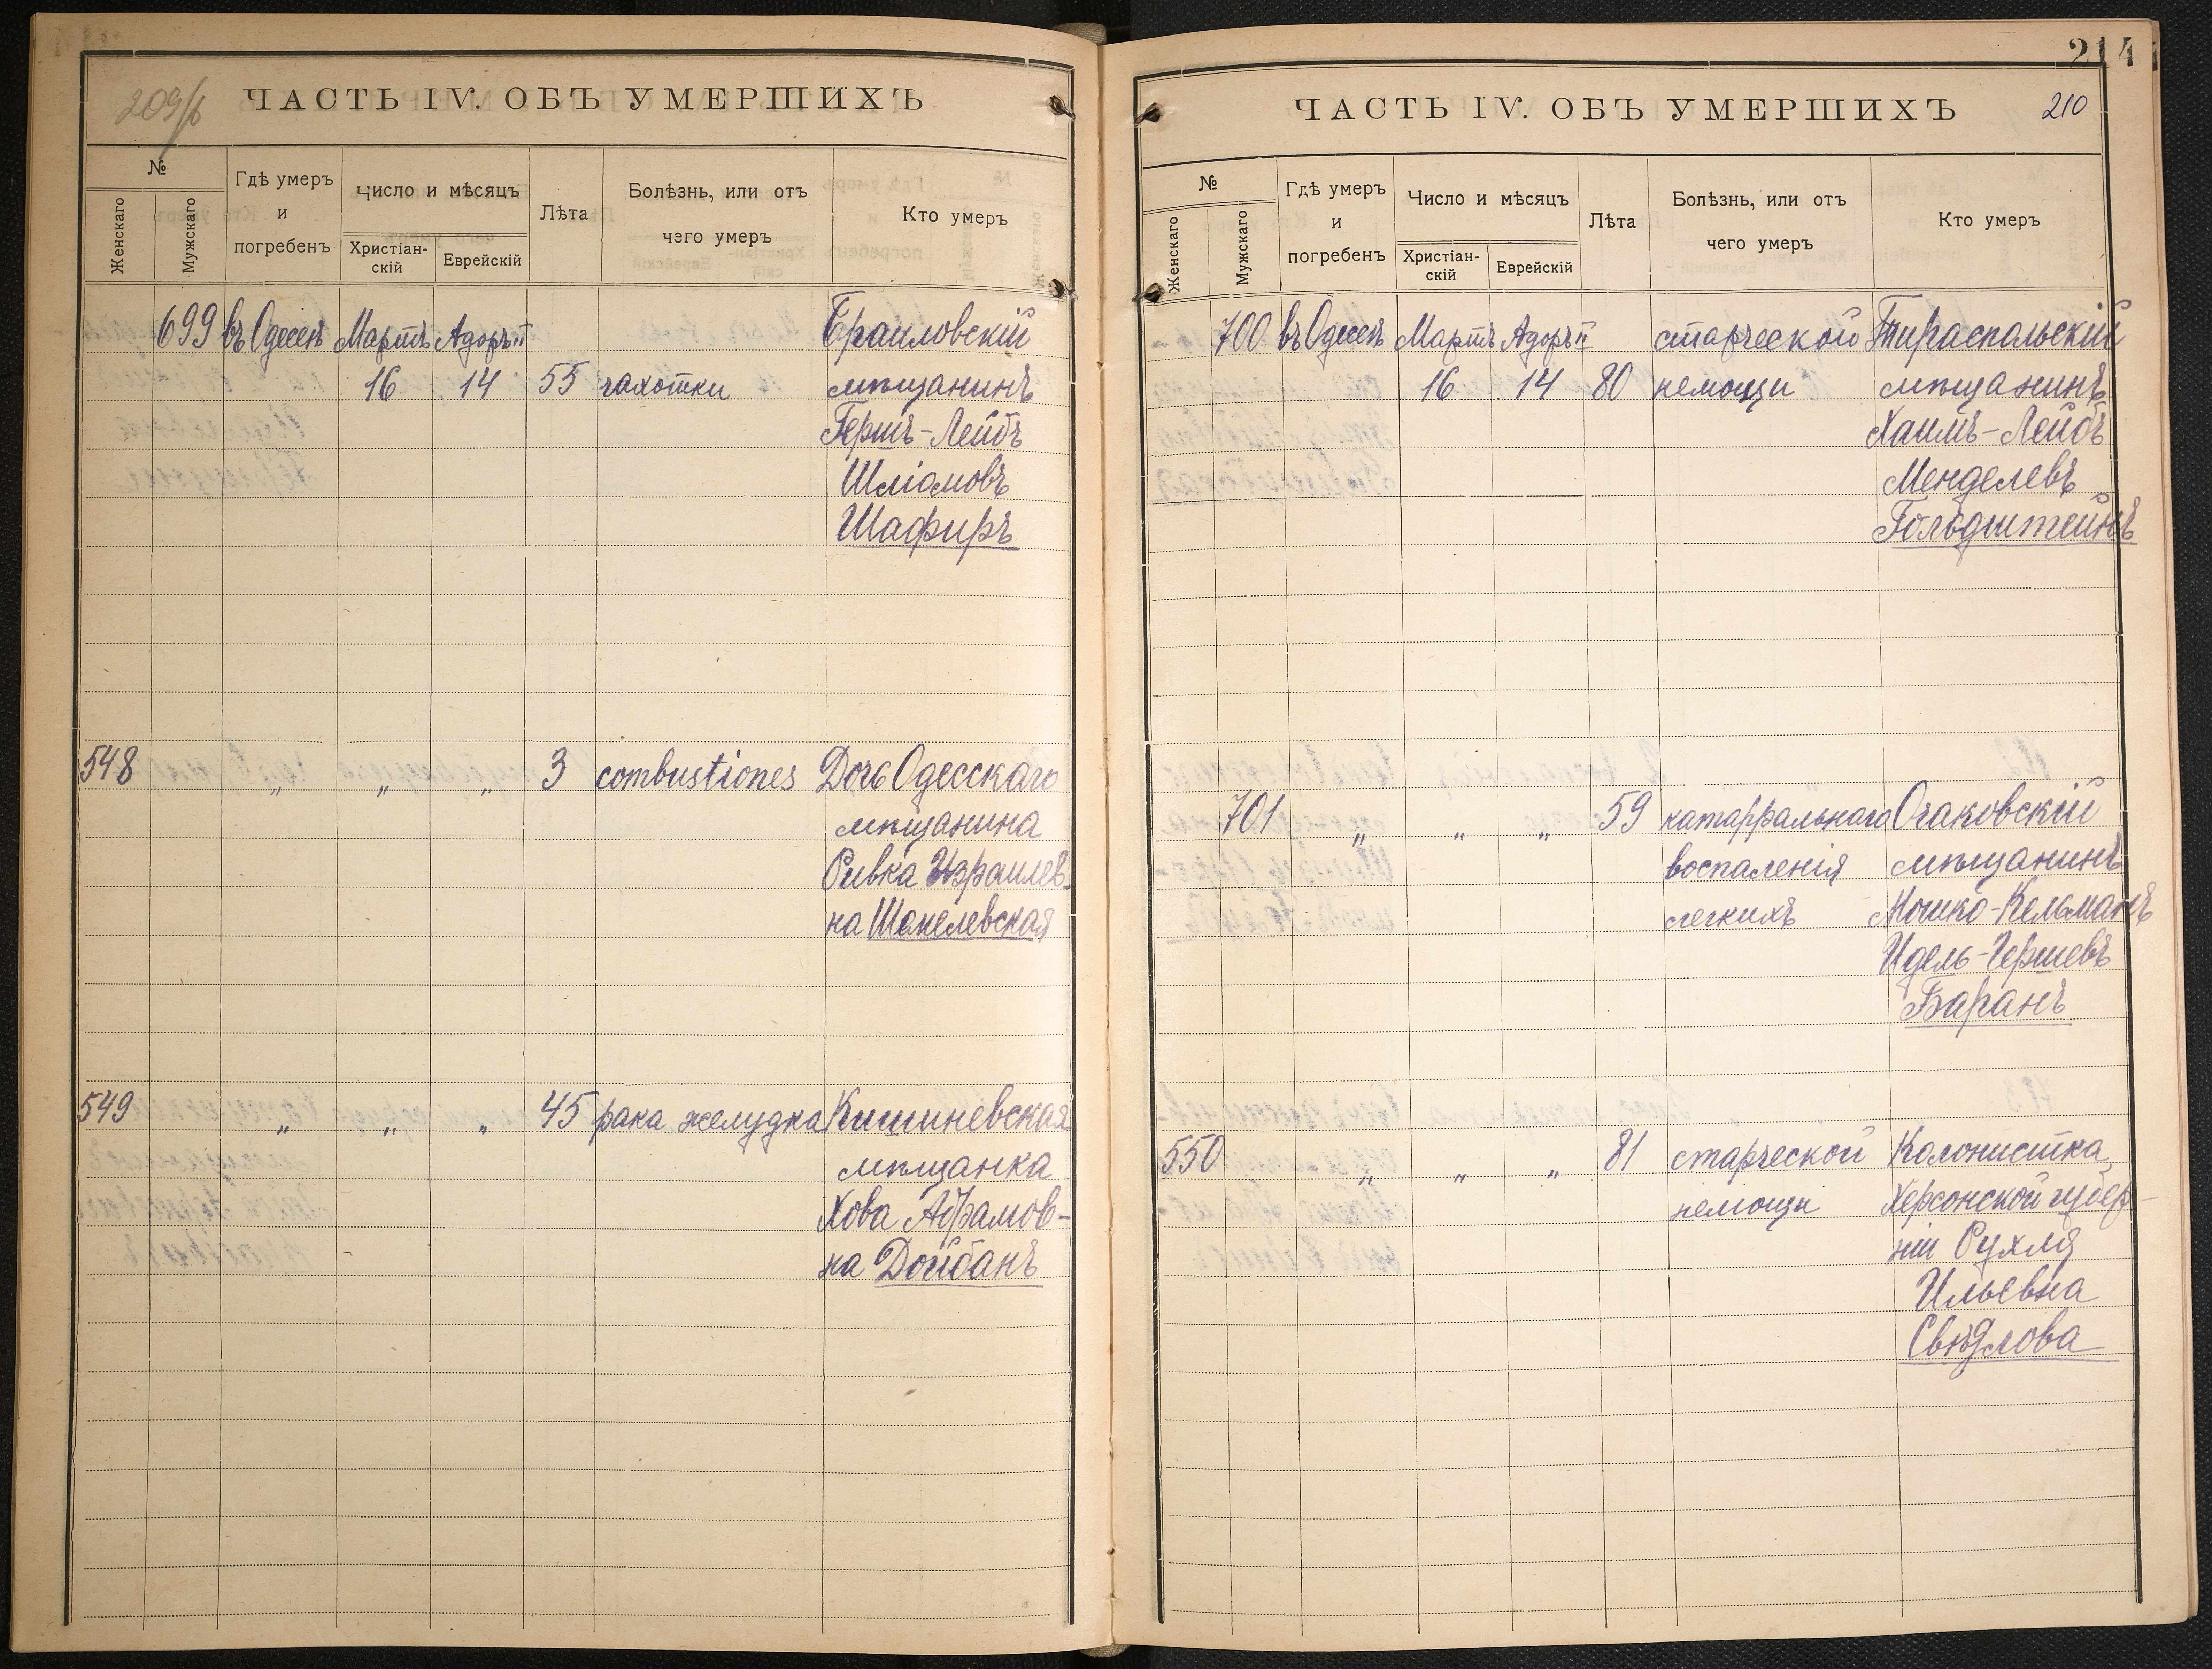 209/б
ЧАСТЬ IV. ОБЪ УМЕРШИХЪ
№
Женскаго
Мужскаго
Гдѣ умеръ
и
погребенъ
Число и мѣсяцъ
Христіан-
скій
Еврейскій
Лѣта
Болѣзнь, или отъ
чего умеръ
Кто умеръ
699 въ Одессѣ Мартъ Адоръ II Браиловскій
16 14 55 чахотки мѣщанинъ
Гершъ-Лейбъ
Шліомовъ
Шафиръ
548 " " " 3 combustiones Дочь Одесскаго
мѣщанина
Ривка Израилев-
на
549 " " " 45 рака желудка Кишиневская
мѣщанка
Хова Абрамов-
на Дойбанъ
214
ЧАСТЬ IV. ОБЪ УМЕРШИХЪ 210
№
Женскаго
Мужскаго
Гдѣ умеръ
и
погребенъ
Число и мѣсяцъ
Христіан-
скій
Еврейскій
Лѣта
Болѣзнь, или отъ
чего умеръ
Кто умеръ
700 въ Одессѣ Мартъ Адоръ II старческой Тираспольскій
16 14 80 немощи мѣщанинъ
Хаимъ-Лейбъ
Менделевъ
Гольдштейнъ
701 " " " 59 катарральнаго Очаковскій
воспаленія мѣщанинъ
легкихъ Мошко-Кельманъ
Идель-Гершевъ
Баранъ
550 " " " 81 старческой Колонистка
немощи Херсонской губер-
ніи Рухля
Ильевна
Свѣдлова